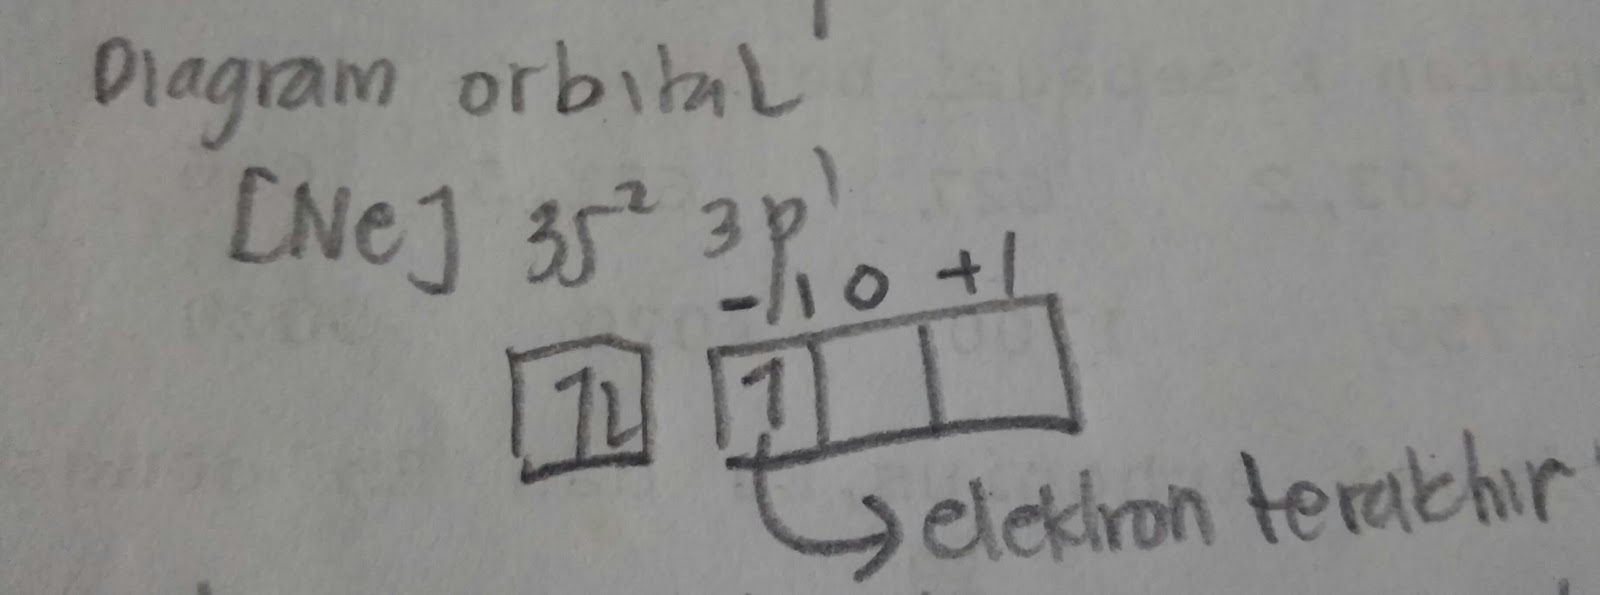 Diagram orbital
[Ne] 3s² 3p¹
-1 0 +1
1L 1
elektron terakhir